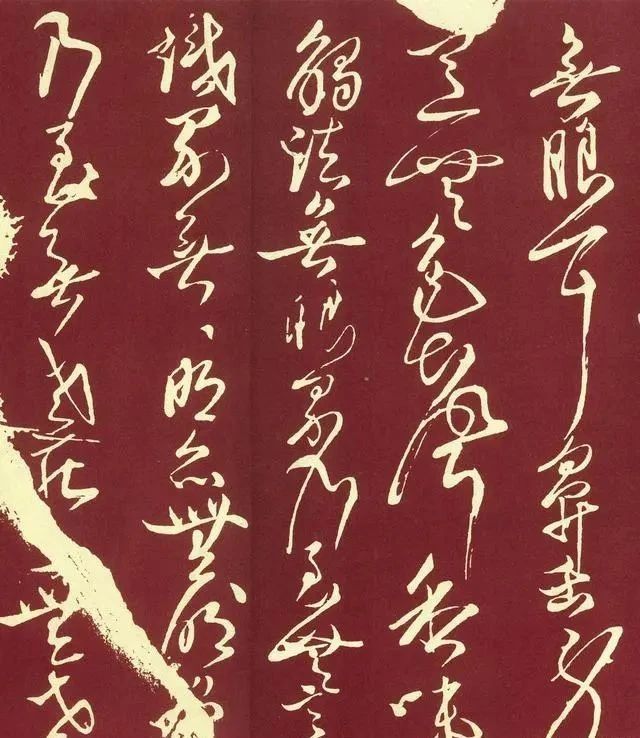 無眼耳鼻舌身
意無色聲香味
觸法無眼界乃至無意
識界無、明亦無明盡
乃至無老死無老